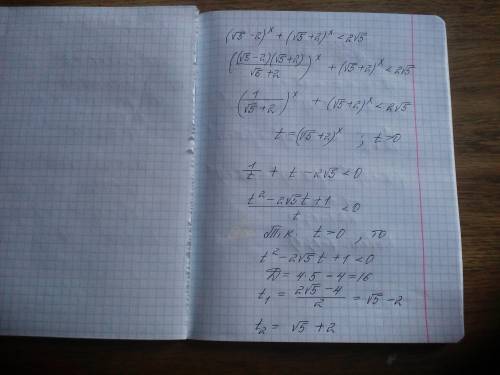 (√5 - 2)^x + (√5 + 2)^x < 2√5
((√5 - 2)(√5 + 2) / (√5 + 2))^x + (√5 + 2)^x < 2√5
(1 / (√5 + 2))^x + (√5 + 2)^x < 2√5
t = (√5 + 2)^x ; t > 0
1/t + t - 2√5 < 0
(t² - 2√5 t + 1) / t < 0
Т.к. t > 0, то
t² - 2√5 t + 1 < 0
D = 4·5 - 4 = 16
t₁ = (2√5 - 4) / 2 = √5 - 2
t₂ = √5 + 2